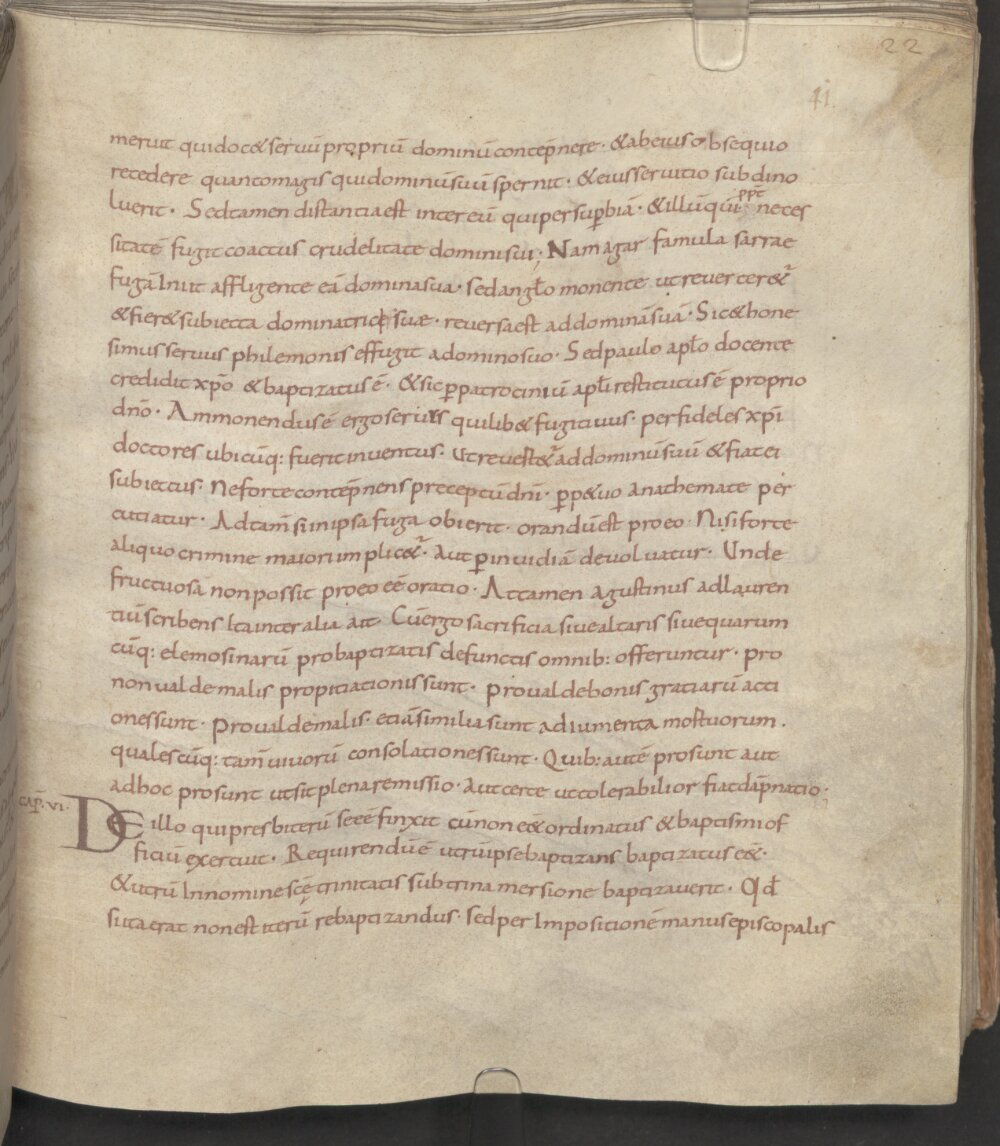 22
41.
meruit qui doc& seruū propriū dominū contēpnere · & ab eius obsequio
recedere quanto magis qui dominū suū spernit · & eius seruitio subdi no
luerit · Sed tamen distantia est inter eū qui per sup̱biā · & illū qui ppt̄ neces
sitatē fugit coactus crudelitate domini sui · Nam agar famula sarrae
fugā Iniit affligente eā domina sua · sed angl̄o monente ut reuerter&ur
& fier& subiecta dominatrici suae · reuersa est ad dominā suā · Sic & hone
simus seruus philemonis effugit a domino suo · Sed paulo apl̄o docente
credidit xp̄o & baptizatus ē · & sic p̱ patrociniū apl̄i restitutus ē proprio
dn̄o · Ammonendus ē ergo seruus quilib& fugitiuus · per fideles xp̄i
doctores ubicūq: fuerit inuentus · Ut reuest&ur ad dominū suū & fiat ei
subiectus · Ne forte contēpnens preceptū dn̄i · p̱p&uo anathemate per
cutiatur · Ad tam̄ si in ipsa fuga obierit · orandū est pro eo · Nisi forte
aliquo crimine maiori implic&ur · Aut p̱ inuidiā deuoluatur · Unde
fructuosā non possit pro eo eē oratio · Attamen agustinus ad lauren
tiū scribens Ita inter alia ait Cū ergo sacrificia siue altaris siue quarum
cūq: elemosinarū pro baptizatis defunctis omnib: offeruntur · pro
non ualde malis propitiationis sunt · pro ualde bonis gratiarū acti
ones sunt · Pro ualde malis · etiā si milia sunt adiumenta mortuorum ·
qualescūq: tam̄ uiuorū consolationes sunt · Quib: autē prosunt aut
ad hoc prosunt ut sit plena remissio · Aut certe ut tolerabilior fiat dāpnatio ·
CAP̄. VI · De illo qui presbiterū se eē finxit cū non eē& ordinatus & baptismi of
ficiū exercuit · Requirendū ē utrū ipse baptizans baptizatus eē& ·
& utrū In nomine scē trinitatis sub trina mersione baptizauerit · Qđ
si ita erat non est iterū rebaptizandus · sed per Impositionē manus episcopalis